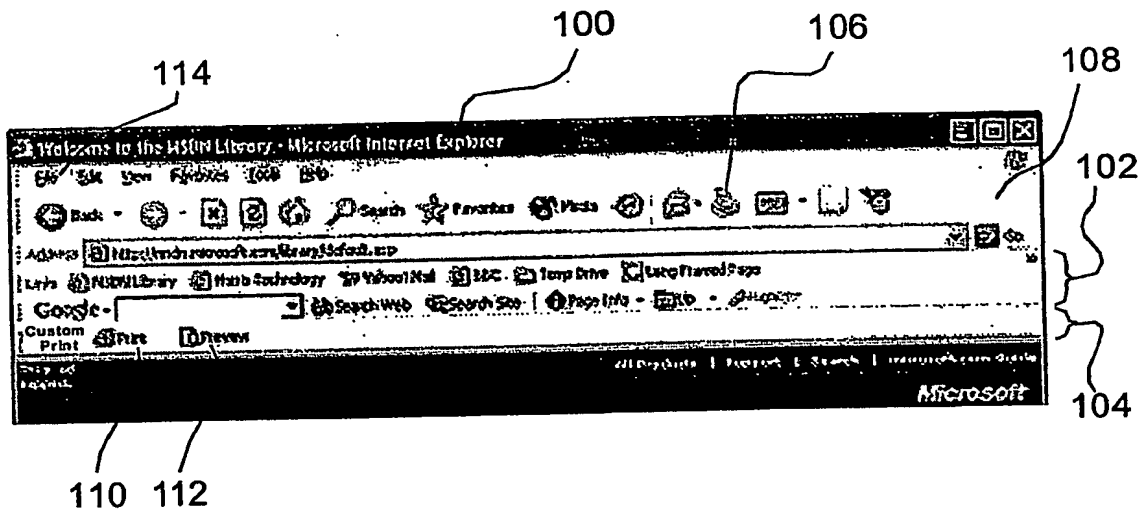 100
106
114
108
Welcome to the MSDN Library - Microsoft Internet Explorer
File Edit View Favorites Tools Help
102
Back Search Favorites Media
Address
Links MSDN Library Yahoo! Mail BBC Temp Drive Long Framed Page
Google Search Web Search Site Page Info Up Highlight
Custom Print Print Preview
All Products | Support | Search | microsoft.com Guide
Microsoft
104
110 112